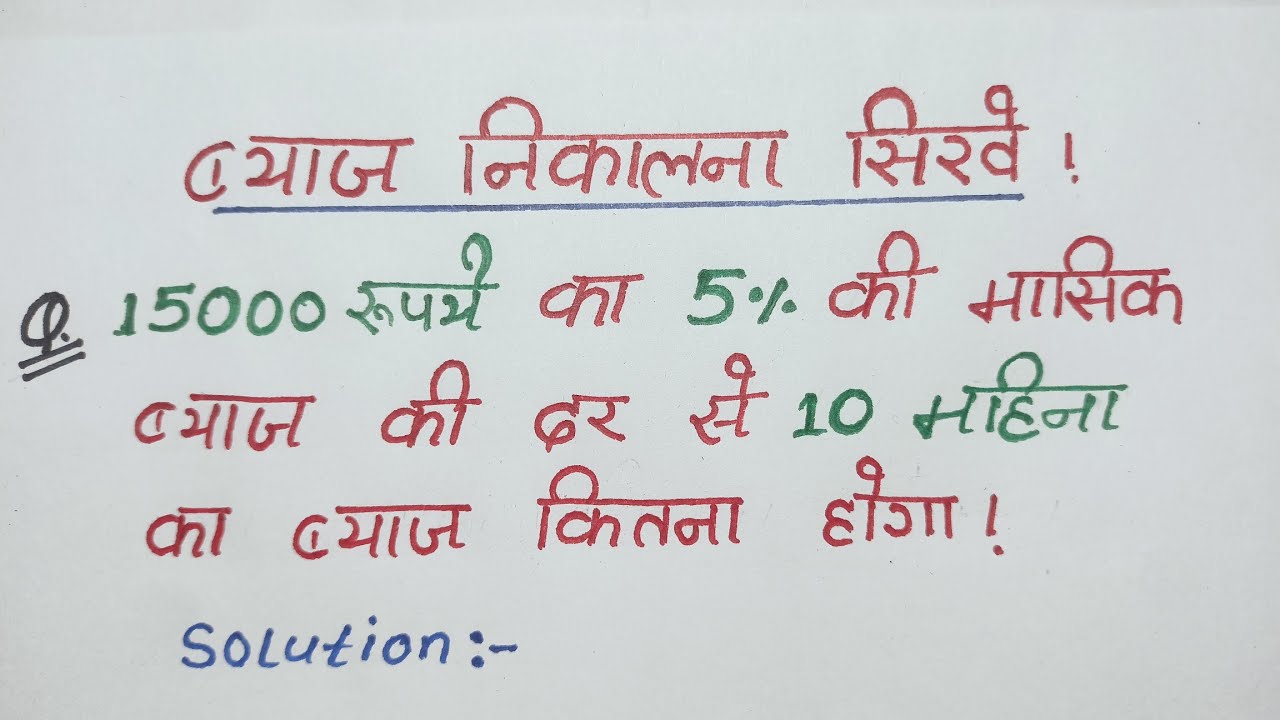 ब्याज निकालना सिखे !
Q. 15000 रूपये का 5% की मासिक
ब्याज की दर से 10 महिना
का ब्याज कितना होगा !
Solution :-